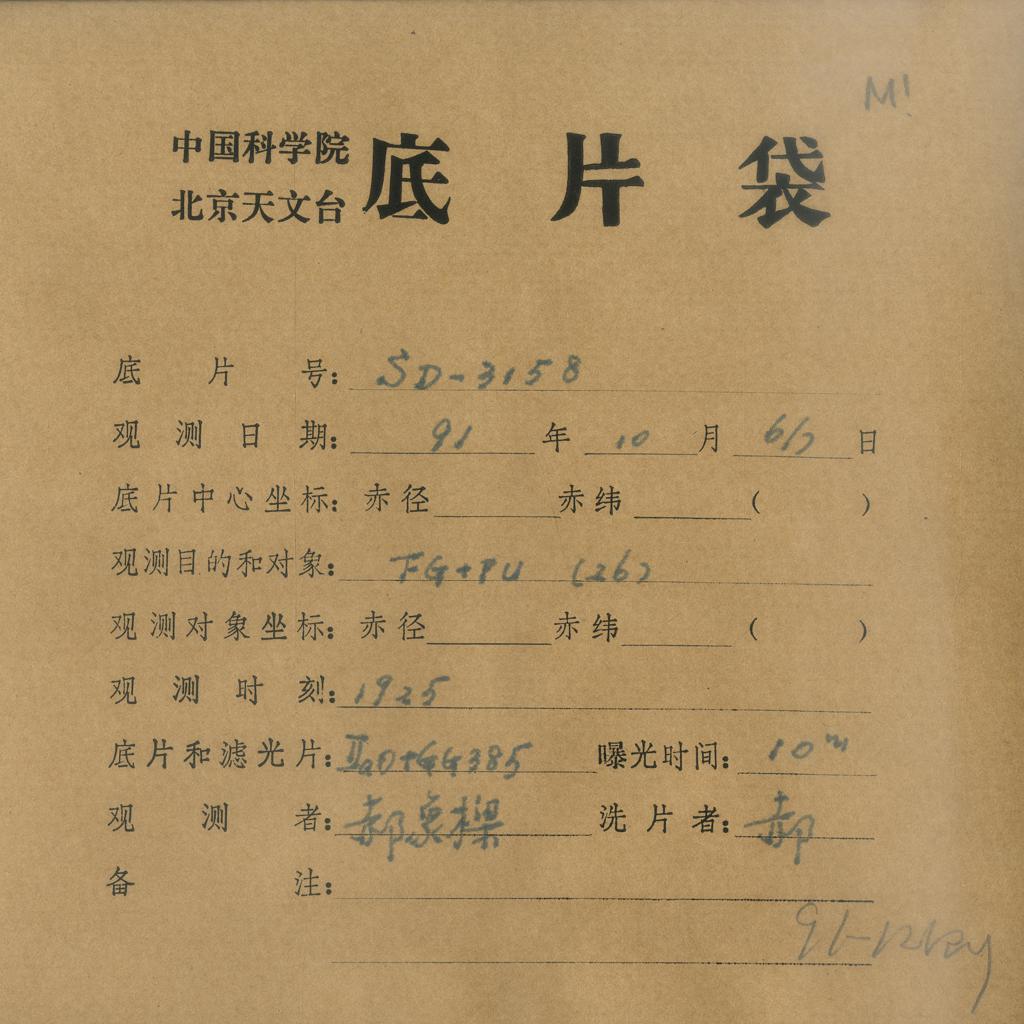 M1
中国科学院
北京天文台
底片袋
底片号：SD-3158
观测日期：91年10月6/7日
底片中心坐标：赤径 赤纬 （ ）
观测目的和对象：FG+PU (26)
观测对象坐标：赤径 赤纬 （ ）
观测时刻：1925
底片和滤光片：IIaD+GG385 曝光时间：10m
观测者：郝 樑 洗片者：郝
备注：